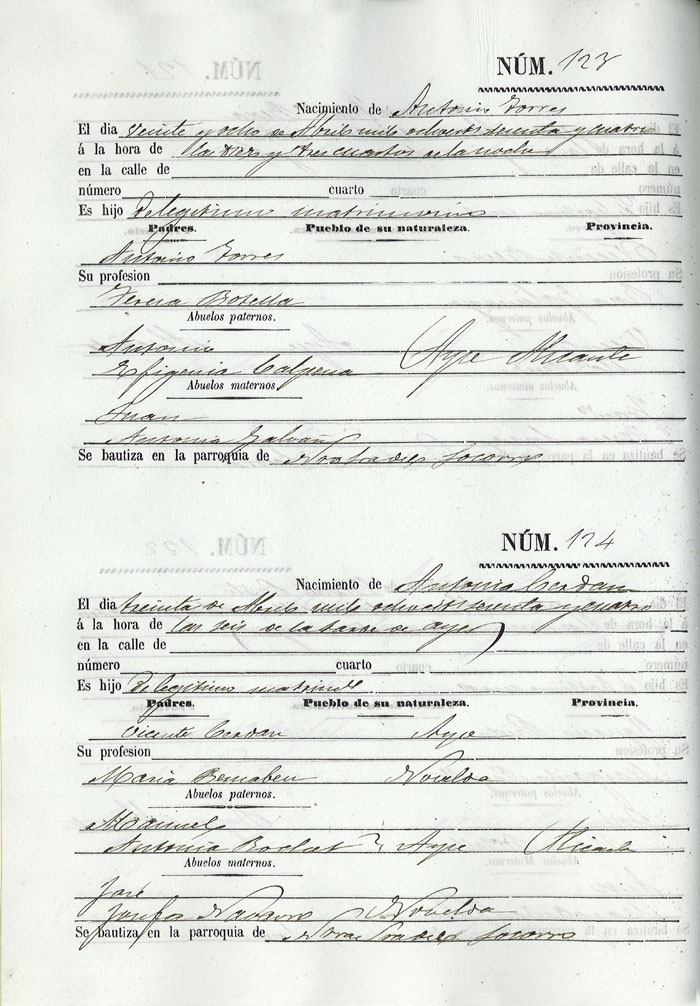 NÚM. 123
Nacimiento de Antonio Torres
El dia veinte y ocho de Abril mil ochocientos sesenta y cuatro
á la hora de las diez y tres cuartos de la noche
en la calle de
número cuarto
Es hijo de legitimo matrimonio
Padres. Pueblo de su naturaleza. Provincia.
Antonio Torres
Su profesion
Teresa Botella
Abuelos paternos.
Antonio
Efigenia Calpena Aspe Alicante
Abuelos maternos.
Juan
Antonia Galvañ
Se bautiza en la parroquia de Ntra Sra del Socorro
NÚM. 124
Nacimiento de Antonia Cerdan
El dia treinta de Abril mil ochocientos sesenta y cuatro
á la hora de las seis de la tarde de ayer
en la calle de
número cuarto
Es hijo de legitimo
Padres. Pueblo de su naturaleza. Provincia.
Vicente Cerdan Aspe
Su profesion
Maria Bernabeu Novelda
Abuelos paternos.
Manuel
Antonia Aspe Alicante
Abuelos maternos.
José
Josefa Navarro Novelda
Se bautiza en la parroquia de Ntra Sra del Socorro